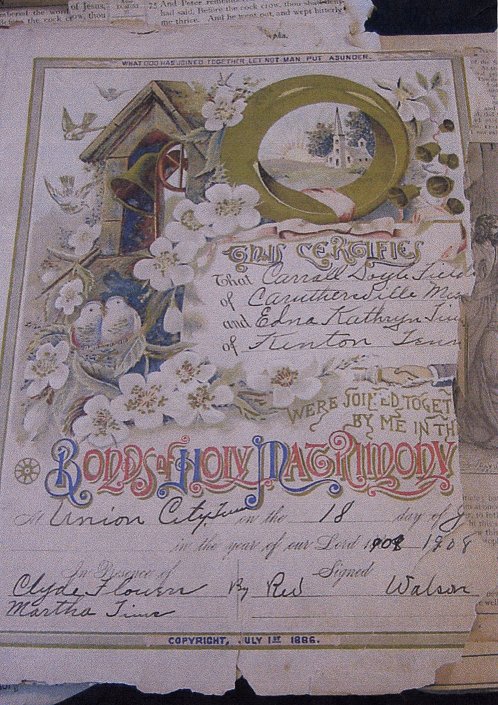 of Jesus,
had said, Before the cock crow, thou
me thrice. And he went out, and wept bitterly.
WHAT GOD HAS JOINED TOGETHER LET NOT MAN PUT ASUNDER.
THIS CERTIFIES
That Carroll Doyle
of Caruthersville
and Edna Kathryn
of Kenton Tenn
WERE JOINED
BY ME IN TH
BONDS OF HOLY MATRIMONY
At Union City Tenn on the 18 day of J
in the year of our Lord 1908 1908
In Presence of Signed
Clyde Flowers By Rev Watson
Martha Tims
COPYRIGHT, JULY 1ST 1886.